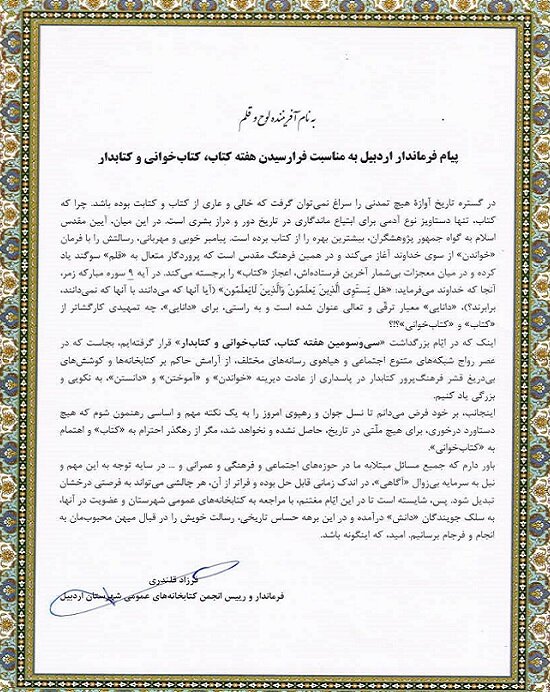 به نام آفریننده لوح و قلم
پیام فرماندار اردبیل به مناسبت فرارسیدن هفته کتاب، کتاب‌خوانی و کتابدار
در گستره تاریخ آوازهٔ هیچ تمدنی را سراغ نمی‌توان گرفت که خالی و عاری از کتاب و کتابت بوده باشد. چرا که
کتاب، تنها دستاویز نوع آدمی برای ابتیاع ماندگاری در تاریخ دور و دراز بشری است. در این میان، آیین مقدس
اسلام به گواه جمهور پژوهشگران، بیشترین بهره را از کتاب برده است. پیامبر خوبی و مهربانی، رسالتش را با فرمان
«خواندن» از سوی خداوند آغاز می‌کند و در همین فرهنگ مقدس است که پروردگار متعال به «قلم» سوگند یاد
کرده و در میان معجزات بی‌شمار آخرین فرستاده‌اش، اعجاز «کتاب» را برجسته می‌کند. در آیه ۹ سوره مبارکه زمر،
آنجا که خداوند می‌فرماید: «هَل یَستَوِی الَّذینَ یَعلَمُونَ وَالَّذینَ لَایَعلَمُون» (آیا آنها که می‌دانند با آنها که نمی‌دانند،
برابرند؟)، «دانایی» معیار ترقّی و تعالی عنوان شده است و به راستی، برای «دانایی»، چه تمهیدی کارگشاتر از
«کتاب» و «کتاب‌خوانی»؟!؟
اینک که در ایّام بزرگداشت «سی‌وسومین هفته کتاب، کتاب‌خوانی و کتابدار» قرار گرفته‌ایم، بجاست که در
عصر رواج شبکه‌های متنوع اجتماعی و هیاهوی رسانه‌های مختلف، از آرامش حاکم بر کتابخانه‌ها و کوشش‌های
بی‌دریغ قشر فرهنگ‌پرور کتابدار در پاسداری از عادت دیرینه «خواندن» و «آموختن» و «دانستن»، به نکویی و
بزرگی یاد کنیم.
اینجانب، بر خود فرض می‌دانم تا نسل جوان و رهپوی امروز را به یک نکته مهم و اساسی رهنمون شوم که هیچ
دستاورد درخوری، برای هیچ ملّتی در تاریخ، حاصل نشده و نخواهد شد، مگر از رهگذر احترام به «کتاب» و اهتمام
به «کتاب‌خوانی».
باور دارم که جمیع مسائل مبتلابه ما در حوزه‌های اجتماعی و فرهنگی و عمرانی و ... در سایه توجه به این مهم و
نیل به سرمایه بی‌زوال «آگاهی»، در اندک زمانی قابل حل بوده و فراتر از آن، هر چالشی می‌تواند به فرصتی درخشان
تبدیل شود. پس، شایسته است تا در این ایّام مغتنم، با مراجعه به کتابخانه‌های عمومی شهرستان و عضویت در آنها،
به سلک جویندگان «دانش» درآمده و در این برهه حساس تاریخی، رسالت خویش را در قبال میهن محبوب‌مان به
انجام و فرجام برسانیم. امید، که اینگونه باشد.
فرزاد قلندری
فرماندار و رییس انجمن کتابخانه‌های عمومی شهرستان اردبیل